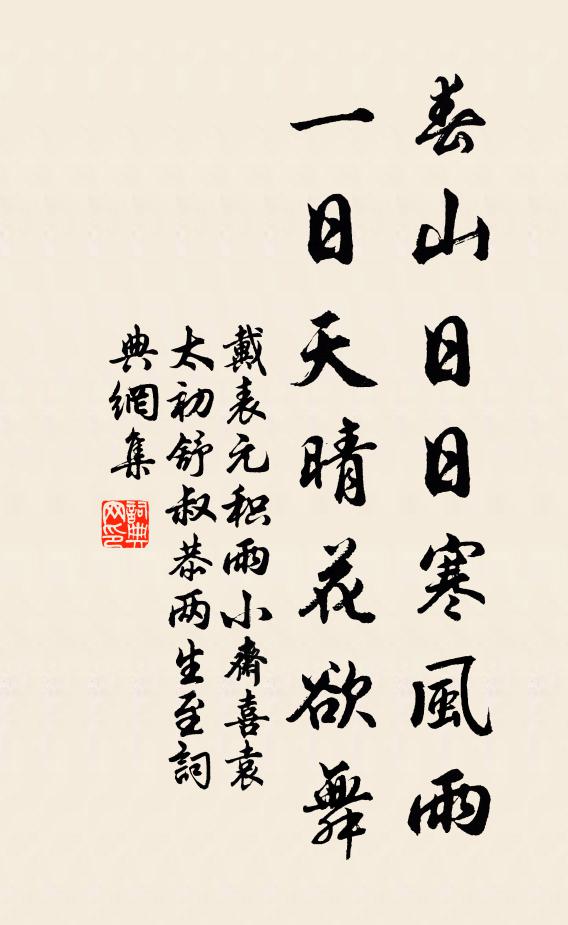 春山日日寒風雨
一日天晴花欲舞
戴表元积雨小齋喜袁
太初舒叔恭两生至詞
典網集
詞典
网印